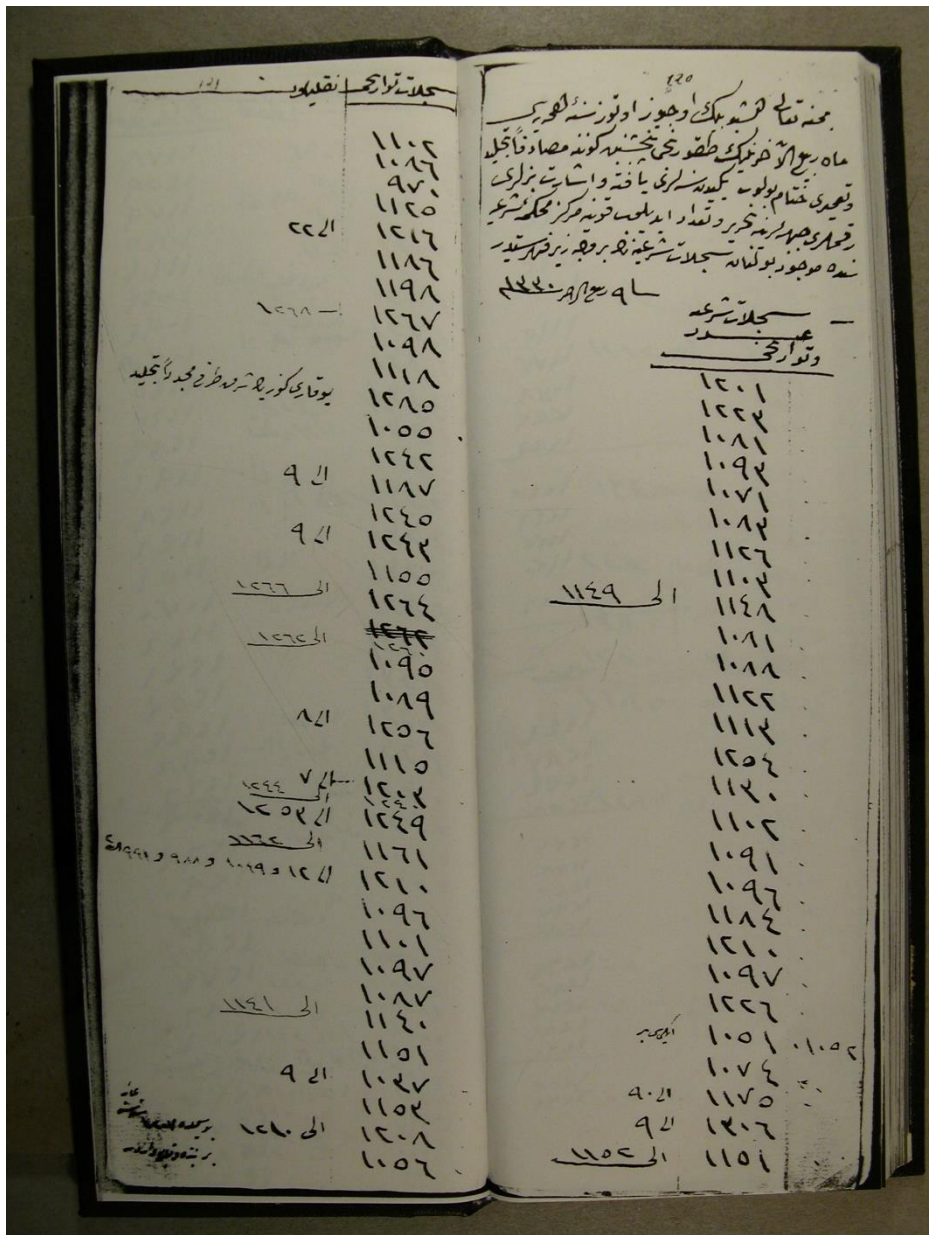 ١٢٠
بمنه تعالى اشبو بيك اوچوز اوتوز سنهٔ هجريسى
ماه ربيع الآخرينك طقوزنجى پنجشنبه كونه مصادفاً تجليد
وتعميرى ختام بولوب
رقملرى تحرير وتعداد ايديلوب قونيه مركز محكمهٔ شرعيه
سنده موجود بولنان سجلات شرعيه نك بر وجه زير فهرستيدر
٩ ربيع الاخر ١٣٣٠
سجلات شرعيه
عدد
وتواريخى
١٢٠١
١٢٢٣
١٠٨١
١٠٩٣
١٠٧١
١٠٨٣
١١٢٦
١١٠٣
١١٤٨ الى ١١٤٩
١٠٨١
١٠٨٨
١١٢٢
١١١٣
١٢٥٤
١١٣٠
١١٠٢
١٠٩١
١٠٩٦
١١٨٤
١٢١٠
١٠٩٧
١٢٢٦
١٠٥١ ١٠٥٢
١٠٧٤
١١٧٥ الى ٩٠
١٣٠٦ الى ٩
١١٥١ الى ١١٥٢
١٢١
سجلات تواريخى
١١٠٢
١٠٨٦
٩٧٠
١١٢٥
١٢١٦ الى ٢٢
١١٨٦
١١٩٨
١٢٦٧ ١٢٦٨
١٠٩٨
١١١٨
١٢٨٥ يوقارى مجدداً تجليد
١٠٥٥
١٢٤٢
١١٨٧ الى ٩
١٢٤٥
١٢٤٣ الى ٩
١١٥٥
١٢٦٤ الى ١٢٦٦
١٢٦٢ الى ١٢٦٢
١٢٦٠
١٠٩٥
١٠٨٩
١٢٥٦ الى ٨
١١١٥
١٢٠٣ الى ٧
١٢٤٠ الى ١٢٤٤
١٢٤٩ الى ١٢٥٣
١١٦١ الى ١١٦٢
١٢١٠ الى ١٢ و ١٠٦٩ و ٩٨٨ و
١٠٩٦
١١٠١
١٠٩٧
١٠٨٧
١١٤٠ الى ١١٤١
١١٥١
١٠٣٧ الى ٩
١١٥٣
١٢٠٨ الى ١٢١٠
١٠٥٦